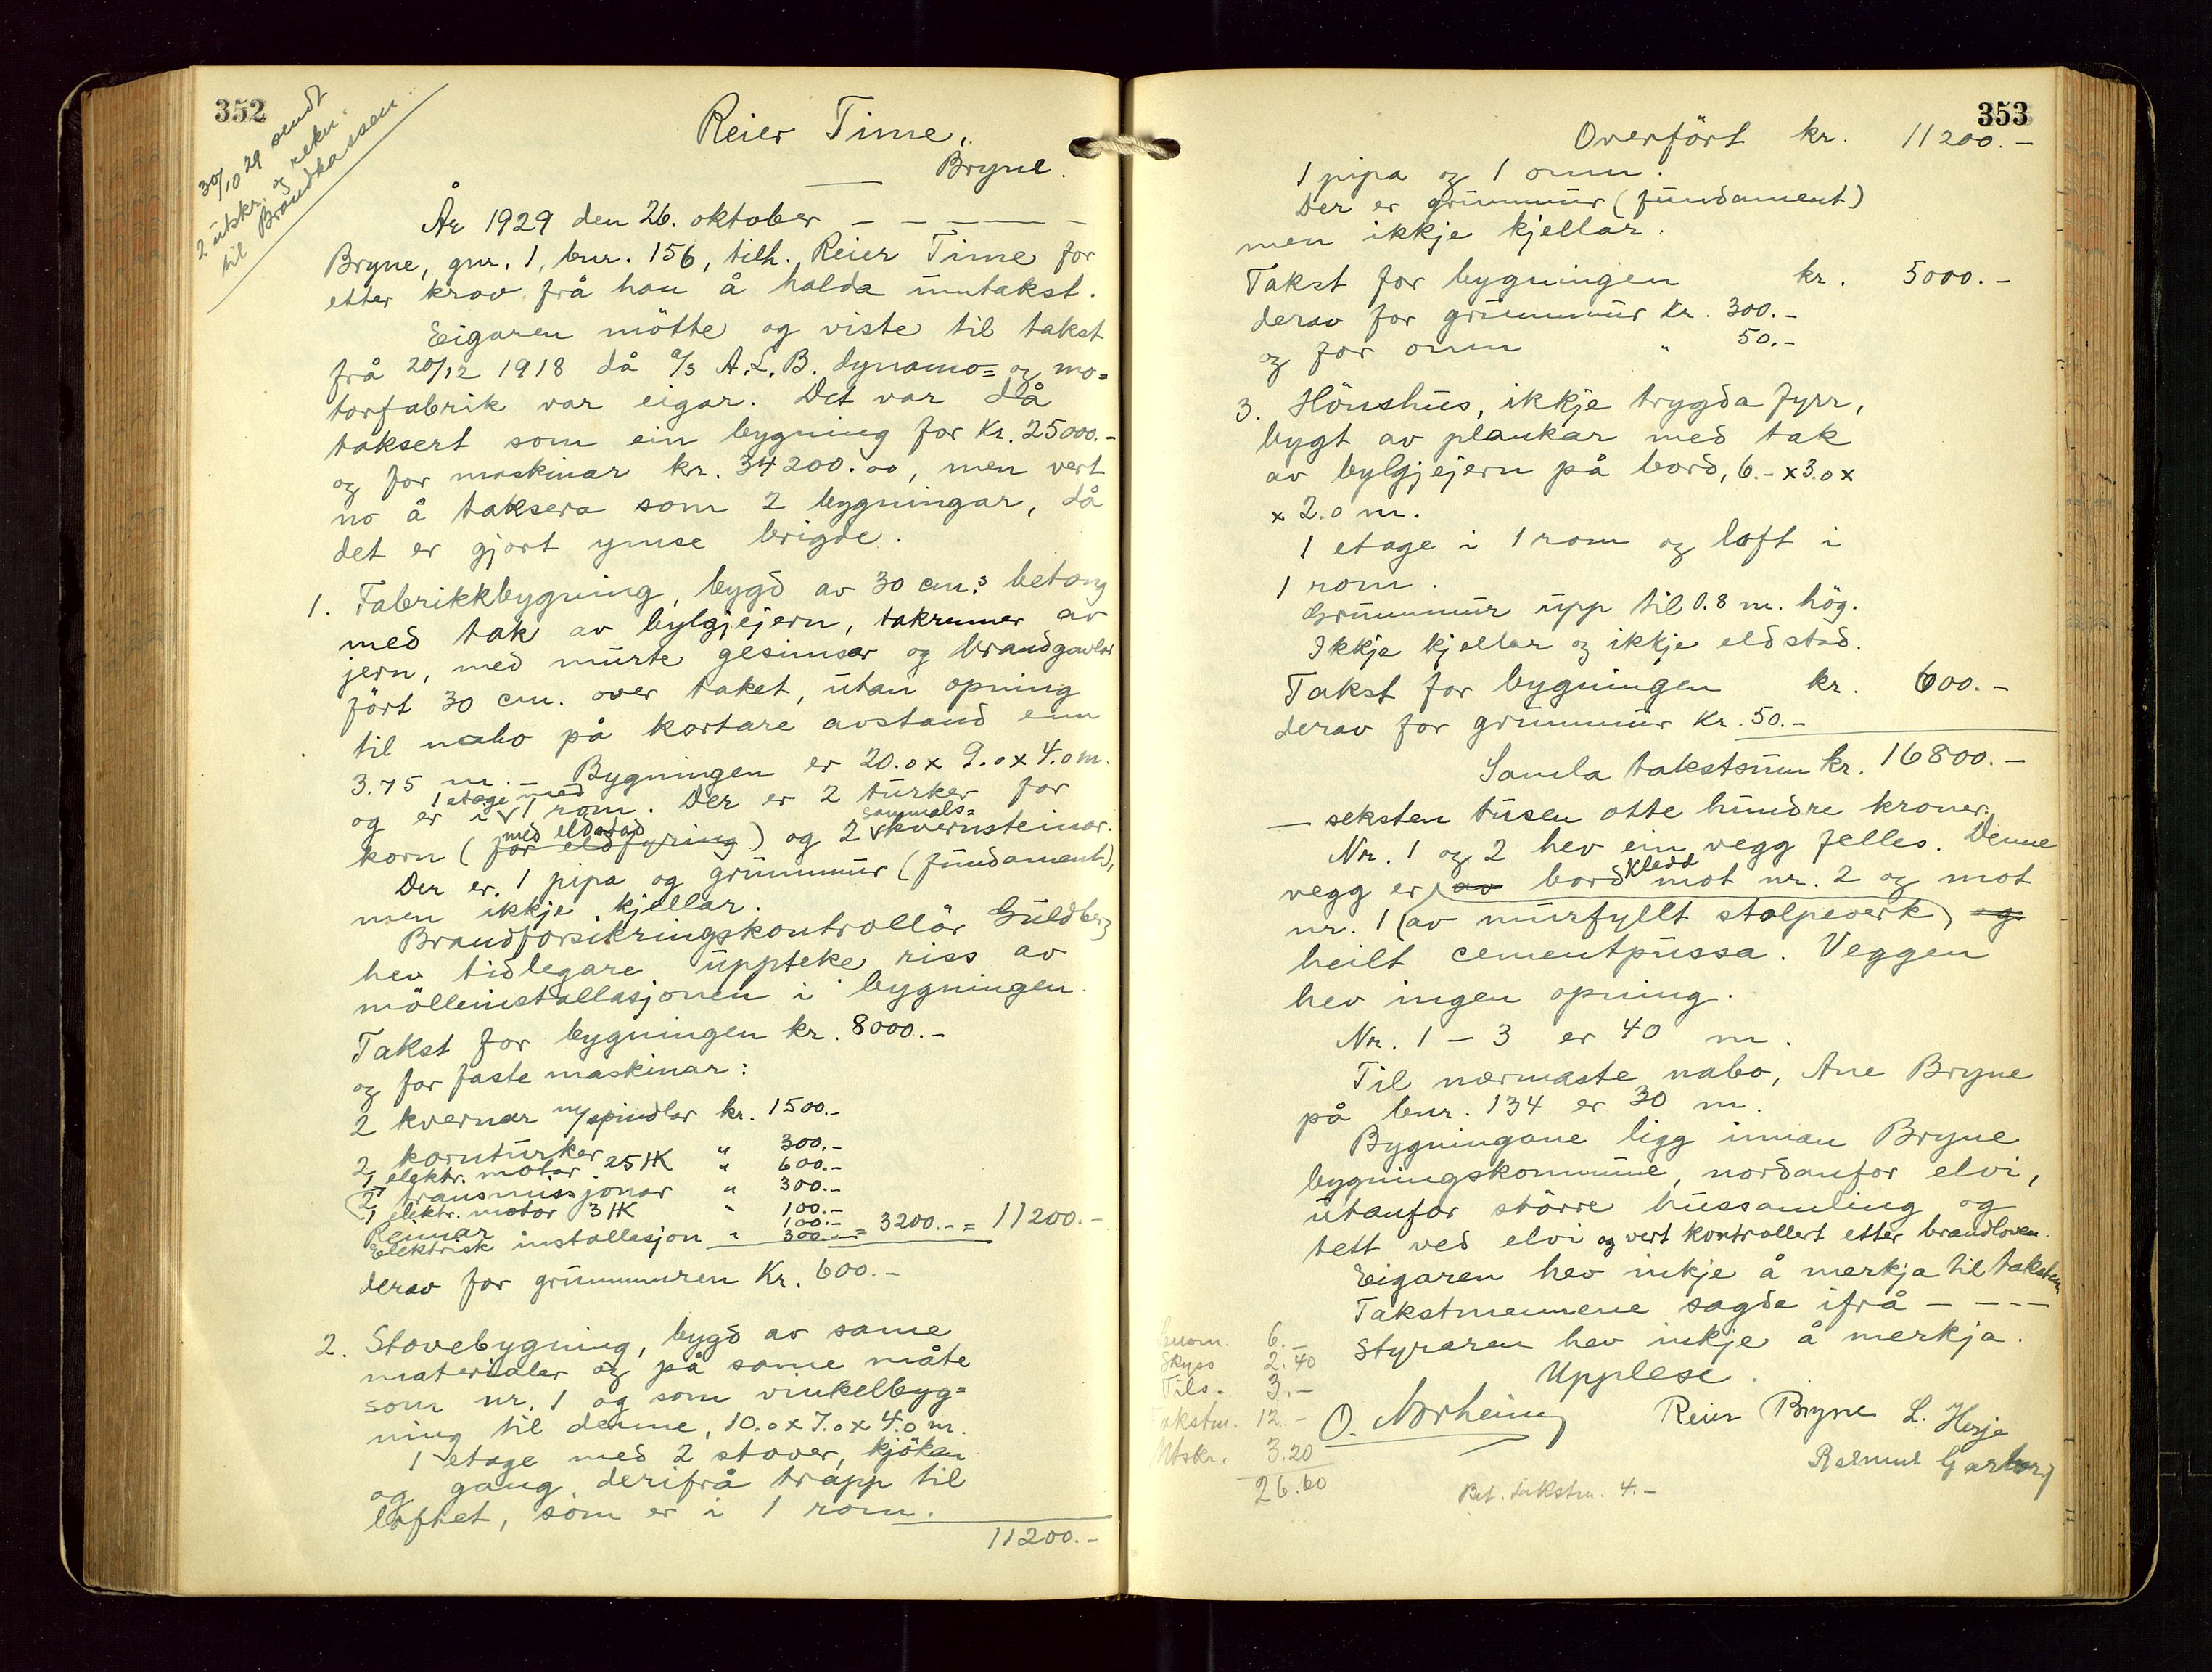 352
30/10 29 sendt
2 utskr. og rekn.
til Brandkassen
Reier Time,
Bryne.
År 1929 den 26. oktober — — — — —
Bryne, gnr. 1, bnr. 156, tilh. Reier Time for
etter krav frå han å halda umtakst.
Eigaren mötte og viste til takst
frå 20/12 1918 då a/s A.L.B. dynamo= og mo=
torfabrik var eigar. Det var då
taksert som ein bygning for Kr. 25000.-
og for maskinar kr. 34200.00, men vert
no å taksera som 2 bygningar, då
det er gjort ymse brigde.
1. Fabrikkbygning, bygd av 30 cm.s betong
med tak av bylgjejern, takrenner av
jern, med murte gesimser og brandgavlar
fört 30 cm. over taket, utan opning
til nabo på kortare avstand enn
3.75 m. — Bygningen er 20.0 x 9.0 x 4.0 m.
og er i 1 etage med 1 rom. Der er 2 turker for
korn (for eldfyring med eldstad) og 2 sammals= kvernsteinar.
Der er 1 pipa og grunnmur (fundament),
men ikkje kjellar.
Brandforsikringskontrollör Guldberg
hev tidlegare uppteke riss av
mölleinstallasjonen i bygningen.
Takst for bygningen kr. 8000.-
og for faste maskinar:
2 kvernar m/spindlar kr. 1500.-
2 kornturker " 300.-
1 elektr. motor 25 HK " 600.-
2 transmissjonar " 300.-
1 elektr. motor 3 HK " 100.-
Reimar 100.-
Elektrisk installasjon " 300.- = 3200.- = 11200.-
derav for grunnmuren Kr. 600.-
2. Stovebygning, bygd av same
materialer og på same måte
som nr. 1 og som vinkelbyg=
ning til denne, 10.0 x 7.0 x 4.0 m.
1 etage med 2 stover, kjöken
og gang, derifrå trapp til
loftet, som er i 1 rom.
11200.-
353
Overfört kr. 11200.-
1 pipa og 1 omn.
Der er grunnmur (fundament)
men ikkje kjellar.
Takst for bygningen kr. 5000.-
derav for grunnmur kr. 300.-
og for omn " 50.-
3. Hönshus, ikkje trygda fyrr,
bygt av plankar med tak
av bylgjejern på bord, 6.- x 3.0 x
x 2.0 m.
1 etage i 1 rom og loft i
1 rom.
Grunnmur upp til 0.8 m. hög.
Ikkje kjellar og ikkje eldstad.
Takst for bygningen kr. 600.-
derav for grunnmur Kr. 50.-
Samla takstsum kr. 16800.-
— seksten tusen otte hundre kroner.
Nr. 1 og 2 hev ein vegg felles. Denne
vegg er av bord kledd mot nr. 2 og mot
nr. 1 (av murfyllt stolpeverk) og
heilt cementpussa. Veggen
hev ingen opning.
Nr. 1 – 3 er 40 m.
Til nærmaste nabo, Ane Bryne
på bnr. 134 er 30 m.
Bygningane ligg innan Bryne
bygningskommune, nordanfor elvi,
utanfor större hussamling og
tett ved elvi og vert kontrollert etter brandloven.
Eigaren hev inkje å merkja til taksten
Takstmennene sagde ifrå — — — —
Styraren hev inkje å merkja.
Upplese.
O. Norheim Reier Bryne L. Herje
Rasmus Garborg
6.-
Skyss 2.40
Tils. 3.-
Takstm. 12.-
Utskr. 3.20
26.60
Bet. takstm. 4.-